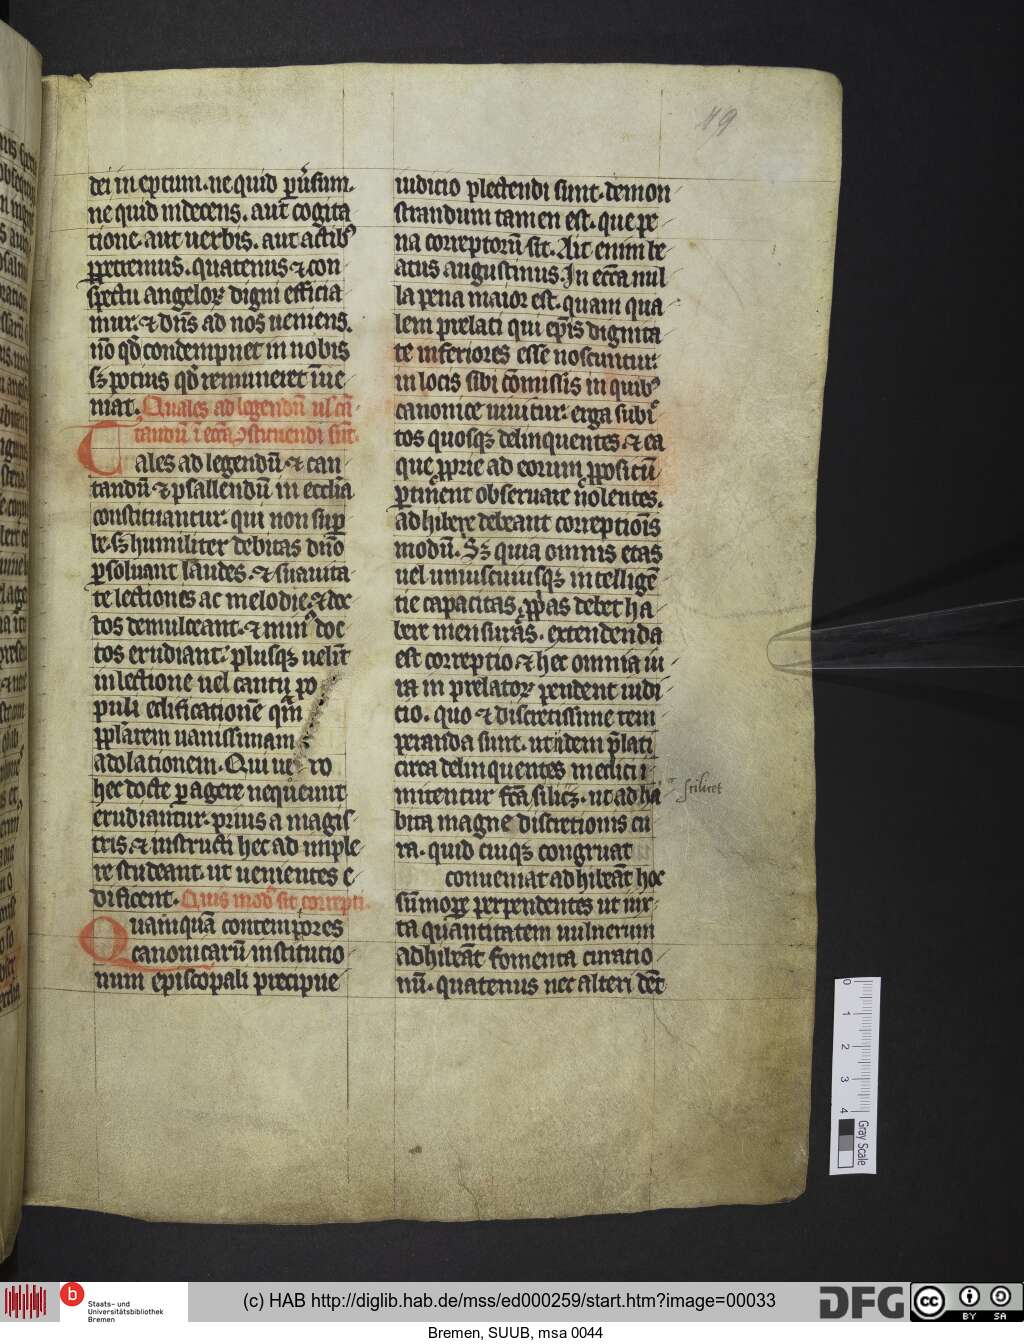 19
dei ineptum. ne quid p̄uersum.
ne quid indecens. aut cogita
tione. aut uerbis. aut actibꝰ
ꝑpetremus. quatenus ⁊ con
spectu angeloꝝ digni efficia
mur. ⁊ dn̄s ad nos ueniens.
nō qd̄ condempnet in nobis
sꝫ potius qd̄ remuneret īue
niat. Quales ad legendū ul̄ cā
tandū ī ecc̄a ꝯstituendi sūt.
Tales ad legendū ⁊ can
tandū ⁊ psallendū in ecclīa
constituantur. qui non suꝑ
be. sꝫ humiliter debitas dn̄o
ꝑsoluant laudes. ⁊ suauita
te lectionis ac melodie. ⁊ doc
tos demulceant. ⁊ minꝰ doc
tos erudiant. plusqꝫ uelīt
in lectione uel cantu po
puli edificationē qm̄
pplarem uanissimam
adolationem. Qui ue ro
hec docte ꝑagere nequeunt
erudiantur. prius a magis
tris. ⁊ instructi hec ad imple
re studeant. ut uenientes e
dificent. Quis modꝰ sit correpti
Quamquā contemptores
canonicarū institutio
num episcopali precipue
iudicio plectendi sunt. demon
strandum tamen est. que pe
na correptorū sit. Ait enim be
atus augustinus. In ecc̄a nul
la pena maior est. quam qua
lem prelati qui ep̄is dignita
te inferiores esse noscuntur.
in locis sibi cōmissis in quibꝰ
canonice uiuitur. erga subi
tos quosqꝫ delinquentes. ⁊ ea
que ꝓprie ad eorum ꝓpositū
ꝑtinent obseruare nolentes.
adhibere debeant correptiōis
modū. Sꝫ quia omnis etas
uel uniuscuiusqꝫ intelligē
tie capacitas ꝓp̄as debet ha
bere mensuras. extendenda
est correptio. ⁊ hec omnia iu
ra in prelatoꝝ pendent iudi
cio. quo ⁊ discretissime tem
peranda sunt. ut idem p̄lati
circa delinquentes medici i
mitentur
scilicet
ut adha
bita magne discretionis cu
ra. quid cuiqꝫ congruat
conueniat adhibeāt hoc
sūmoꝑe perpendentes ut iux
ta quantitatem uulnerum
adhibeāt fomenta curatio
nū. quatenus nec alteri dēt
0 1 2 3 4
Gray Scale
b Staats- und
Universitätsbibliothek
Bremen
(c) HAB http://diglib.hab.de/mss/ed000259/start.htm?image=00033
DFG
cc BY SA
Bremen, SUUB, msa 0044